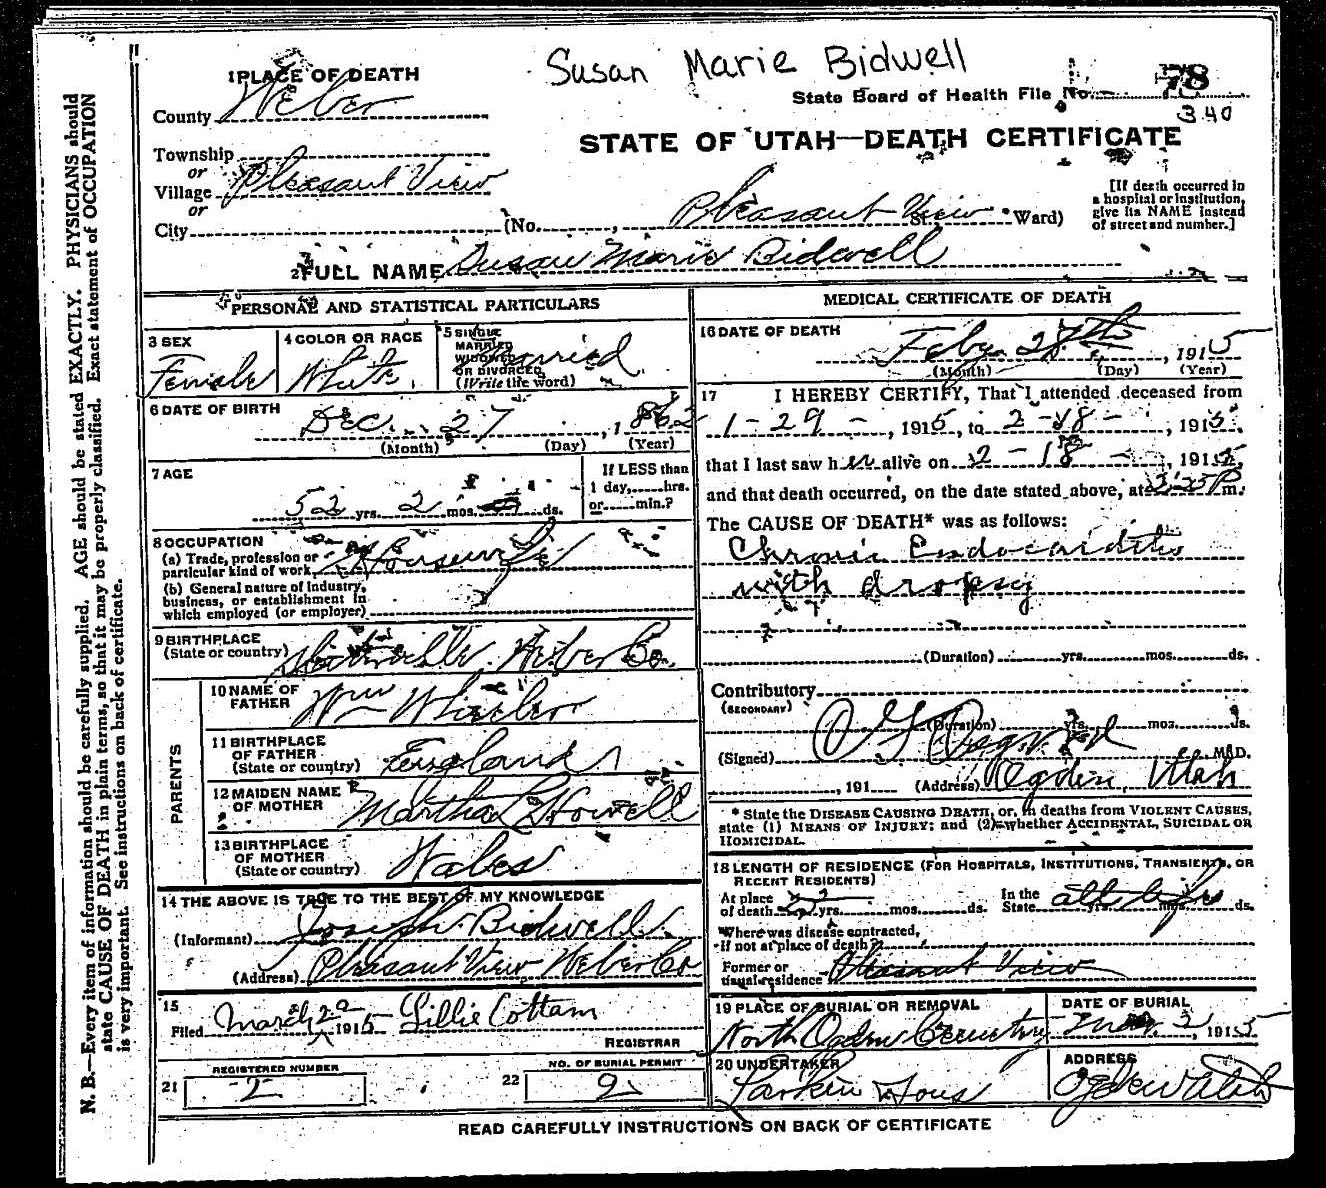 Susan Marie Bidwell
1 PLACE OF DEATH
State Board of Health File No. 78
340
County Weber
STATE OF UTAH—DEATH CERTIFICATE
Township
or
Village Pleasant View
or
City (No. , Pleasant View St. Ward)
[If death occurred in
a hospital or institution,
give its NAME instead
of street and number.]
2 FULL NAME Susan Marie Bidwell
PERSONAL AND STATISTICAL PARTICULARS
3 SEX
Female
4 COLOR OR RACE
White
5 SINGLE
MARRIED
WIDOWED
OR DIVORCED
(Write the word)
Married
6 DATE OF BIRTH
Dec. 27, 1862
(Month) (Day) (Year)
7 AGE
52 yrs. 2 mos. ds.
If LESS than
1 day, hrs.
or min.?
8 OCCUPATION
(a) Trade, profession or
particular kind of work Housewife
(b) General nature of industry,
business, or establishment in
which employed (or employer)
9 BIRTHPLACE
(State or country) Weber Co.
PARENTS
10 NAME OF
FATHER Wm Wheeler
11 BIRTHPLACE
OF FATHER
(State or country) England
12 MAIDEN NAME
OF MOTHER Martha Howell
13 BIRTHPLACE
OF MOTHER
(State or country) Wales
14 THE ABOVE IS TRUE TO THE BEST OF MY KNOWLEDGE
(Informant) Joseph Bidwell
(Address) Pleasant View Weber Co
15
Filed March 2 1915 Lillie Cottam
REGISTRAR
21 REGISTERED NUMBER
2
22 NO. OF BURIAL PERMIT
2
MEDICAL CERTIFICATE OF DEATH
16 DATE OF DEATH
Feby 28th, 1915
(Month) (Day) (Year)
17 I HEREBY CERTIFY, That I attended deceased from
1-29-, 1915, to 2-18-, 1915,
that I last saw her alive on 2-18-, 1915,
and that death occurred, on the date stated above, at 3:25 P m.
The CAUSE OF DEATH* was as follows:
Chronic Endocarditis
with dropsy
(Duration) yrs. mos. ds.
Contributory
(SECONDARY)
(Duration) yrs. mos. ds.
(Signed) M.D.
, 191 (Address) Ogden, Utah
* State the DISEASE CAUSING DEATH, or, in deaths from VIOLENT CAUSES,
state (1) MEANS OF INJURY; and (2) whether ACCIDENTAL, SUICIDAL OR
HOMICIDAL.
18 LENGTH OF RESIDENCE (FOR HOSPITALS, INSTITUTIONS, TRANSIENTS, OR
RECENT RESIDENTS)
At place
of death yrs. mos. ds.
In the
State all life yrs. mos. ds.
Where was disease contracted,
if not at place of death?
Former or
usual residence Pleasant View
19 PLACE OF BURIAL OR REMOVAL
North Ogden Cemetery
DATE OF BURIAL
Mar. 2, 1915
20 UNDERTAKER
Larkin & Sons
ADDRESS
Ogden Utah
READ CAREFULLY INSTRUCTIONS ON BACK OF CERTIFICATE
N. B.—Every item of information should be carefully supplied. AGE should be stated EXACTLY. PHYSICIANS should
state CAUSE OF DEATH in plain terms, so that it may be properly classified. Exact statement of OCCUPATION
is very important. See instructions on back of certificate.